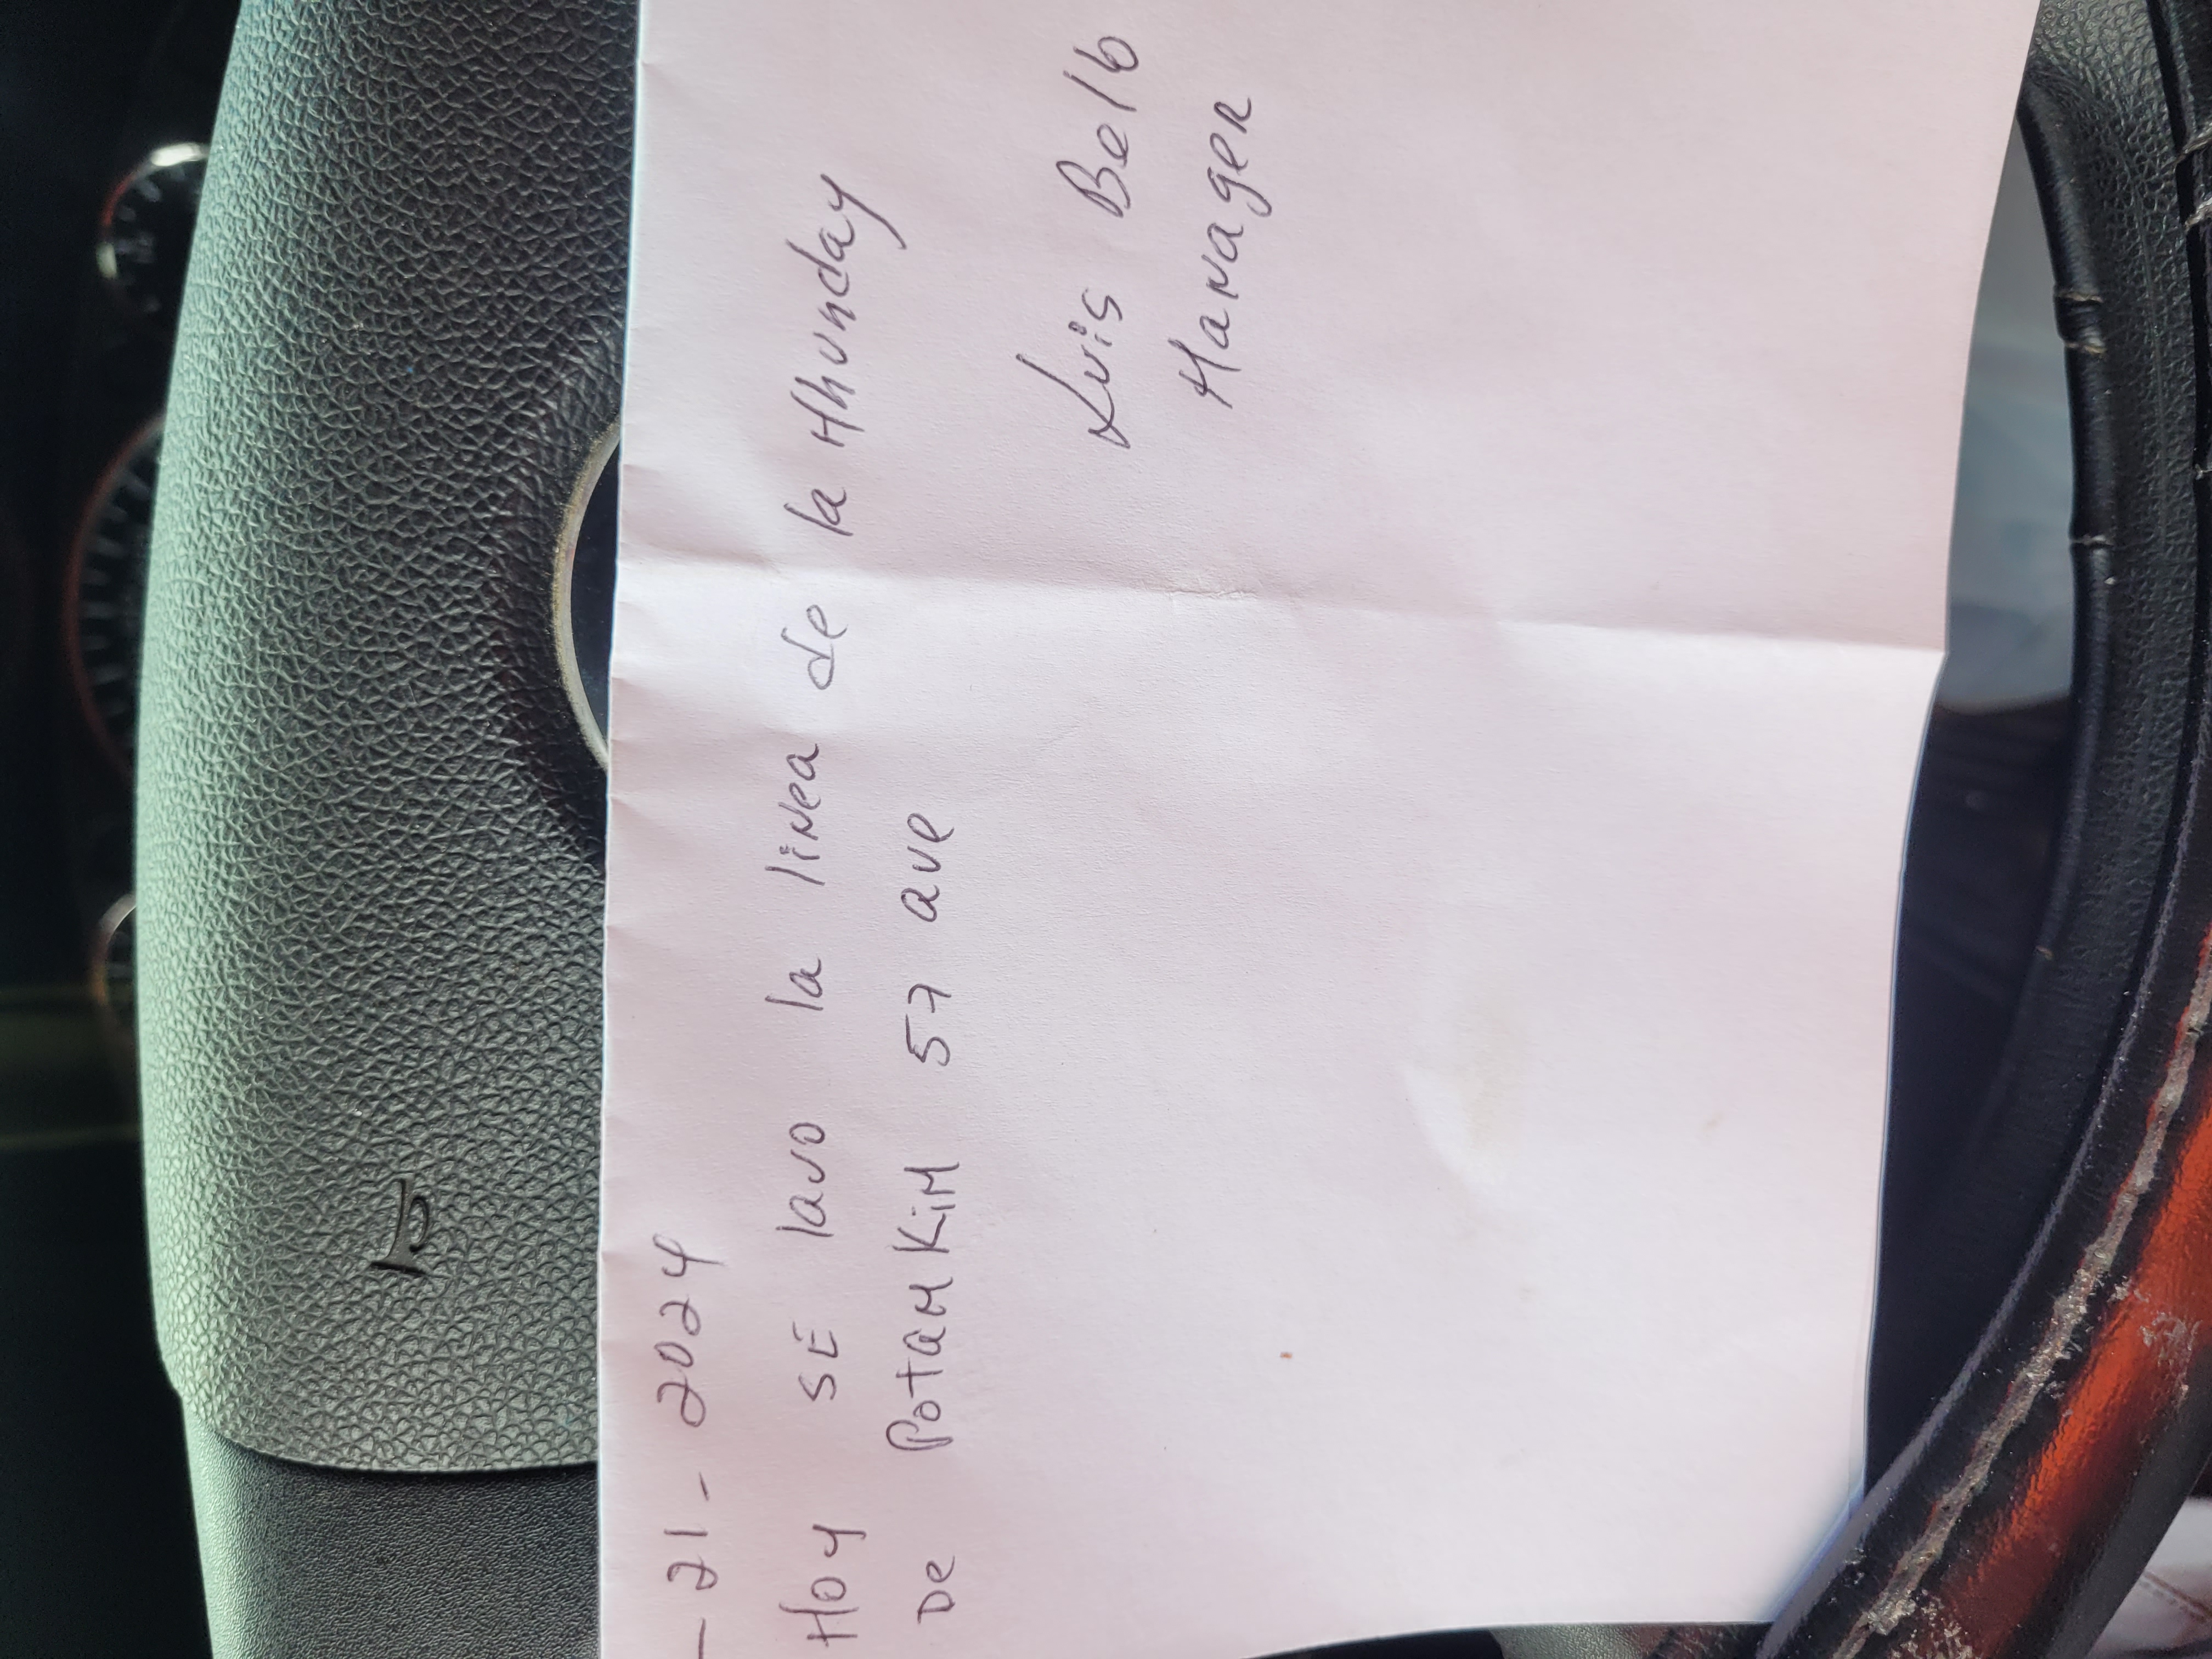 - 21 - 2024
Hoy SE lavo la linea de la Hhunday
De Potamkim 57 ave
Luis Bello
Manager